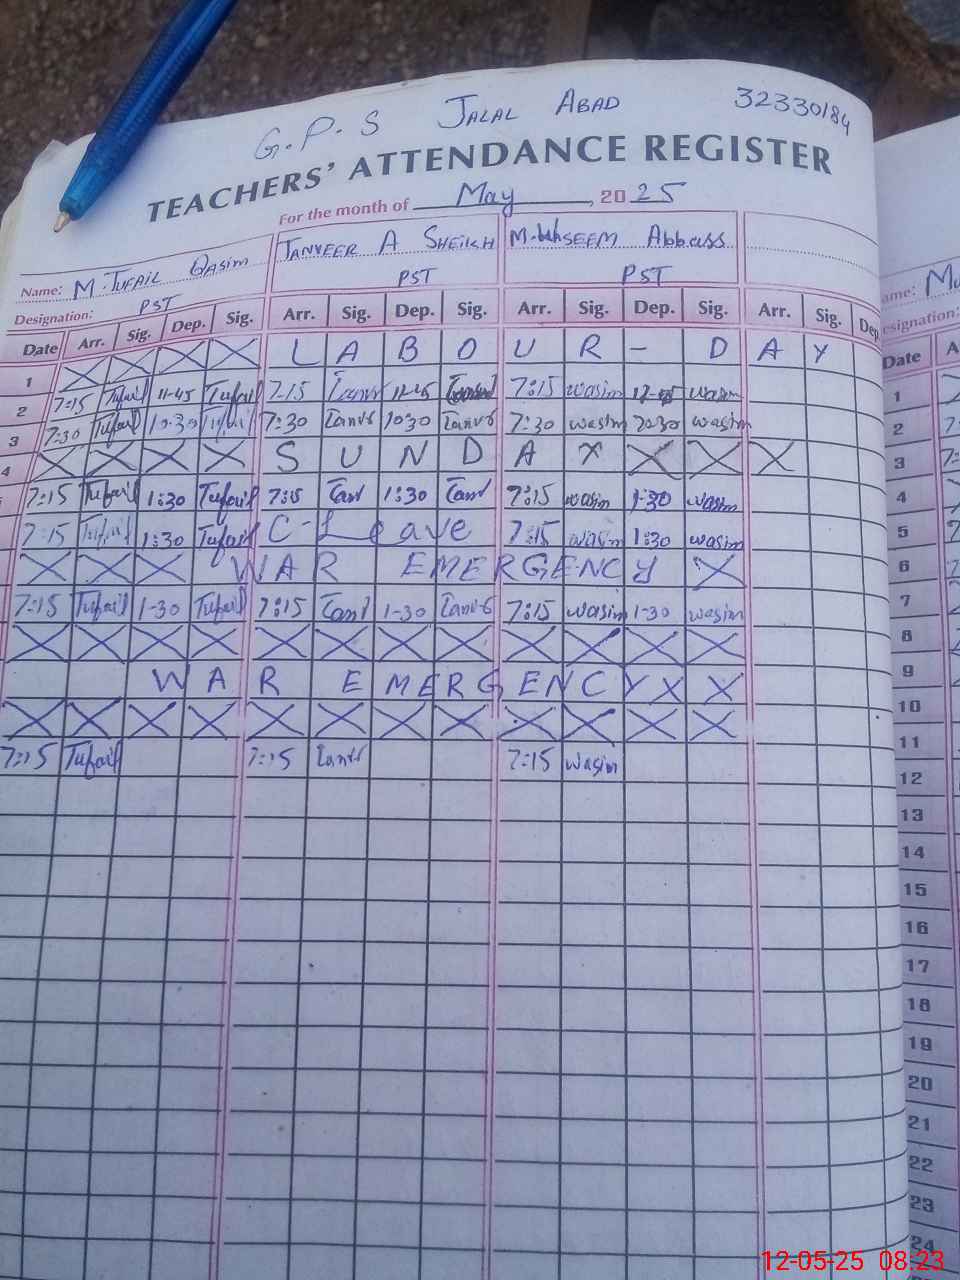 G.P.S JALAL ABAD 32330184
TEACHERS' ATTENDANCE REGISTER
For the month of May, 2025
Name: M. TUFAIL QASIM TANVEER A SHEIKH M. WASEEM Abbass
Designation: PST PST PST
Date Arr. Sig. Dep. Sig. Arr. Sig. Dep. Sig. Arr. Sig. Dep. Sig. Arr. Sig. Dep.
1 LABOUR - DAY
2 7:15 Tufail 11-45 Tufail 7-15 Tanvr 11-45 7:15 wasim wasim
3 7:30 Tufail 10-30 Tufail 7:30 Tanvr 10:30 Tanvr 7:30 wasim wasim
4 SUNDAY
7:15 Tufail 1:30 Tufail 7:15 Tanv 1:30 Tanv 7:15 wasim 1-30 wasim
7:15 Tufail 1:30 Tufail C-Leave 7:15 wasim 1:30 wasim
WAR EMERGENCY
7:15 Tufail 1-30 Tufail 7:15 Tanv 1-30 Tanvr 7:15 wasim 1-30 wasim
WAR EMERGENCY
7:15 Tufail 7:15 Tanvr 7:15 wasim
ame: Mu
esignation:
Date A
1
2
3
4
5
6
7
8
9
10
11
12
13
14
15
16
17
18
19
20
21
22
23
24
12-05-25 08:23